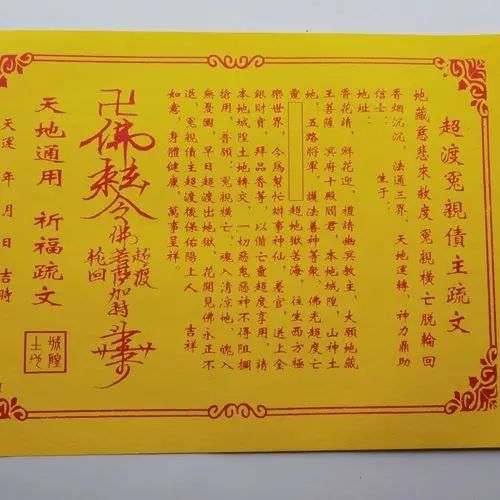 超渡冤親債主疏文
地藏慈悲來救度 冤親橫亡脱輪回
香烟沉沉, 法通三界, 天地運轉, 神力鼎助
信士: 生于:
地址:
香花請, 鮮花迎, 禮請幽冥教主, 大願地藏
王菩薩, 冥府十殿閻君, 本地城隍, 山神土
地, 五路將軍, 護法善神等衆, 佛光超度亡
靈 超地獄苦海, 往生西方極
樂世界, 今爲幫忙辦事神仙, 善官, 送上金
銀財寶, 拜品香等, 以備亡靈超度享用, 請
本地城隍土地轉交, 一切惡鬼惡神不得阻攔
搶用, 普願: 冤親橫亡, 魂入清凉地, 魄入
無憂園, 早日超渡出地獄, 花開見佛永正不
退, 冤親債主超渡後保佑陽上人 吉祥
如意, 身體健康, 萬事呈祥。
卍佛敕令佛菩薩加持
超渡
輪回
天地通用 祈福疏文
天運 年 月 日 吉時
城隍
土地